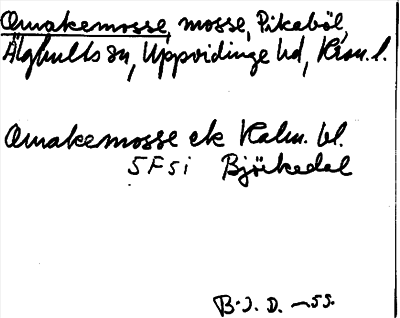 Qvnakemosse, mosse, Pikaböl,
Älghults sn, Uppvidinge hd, Kron. l.
Qvnakemosse ek Kalm. bl.
5F5i Björkedal
B.J.D. -55.